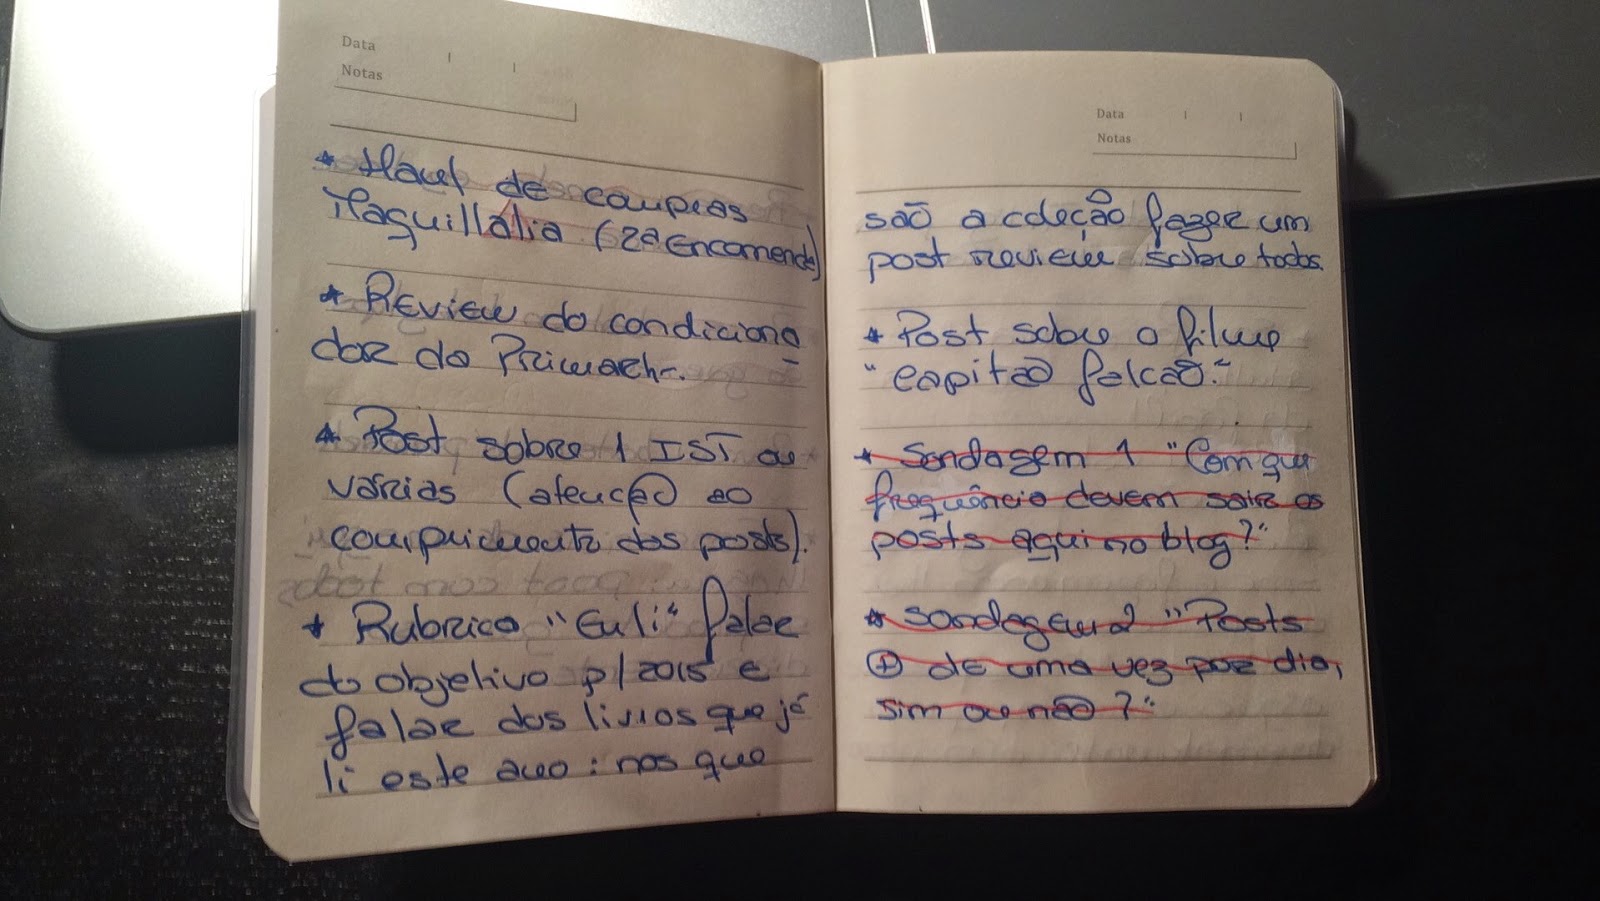 Data
Notas
* Haul de compras
Maquillalia (2ª Encomenda)
* Review do condiciona
dor da Primark.
* Post sobre 1 IST ou
várias (atenção ao
comprimento dos posts).
* Rubrica "Eu li" falar
do objetivo p/2015 e
falar dos livros que já
li este ano: nos que
Data
Notas
são a coleção fazer um
post review sobre todos.
* Post sobre o filme
"Capitão Falcão."
* Sondagem 1 "Com que
frequência devem sair os
posts aqui no blog?"
* Sondagem 2 "Posts
+ de uma vez por dia,
sim ou não?"